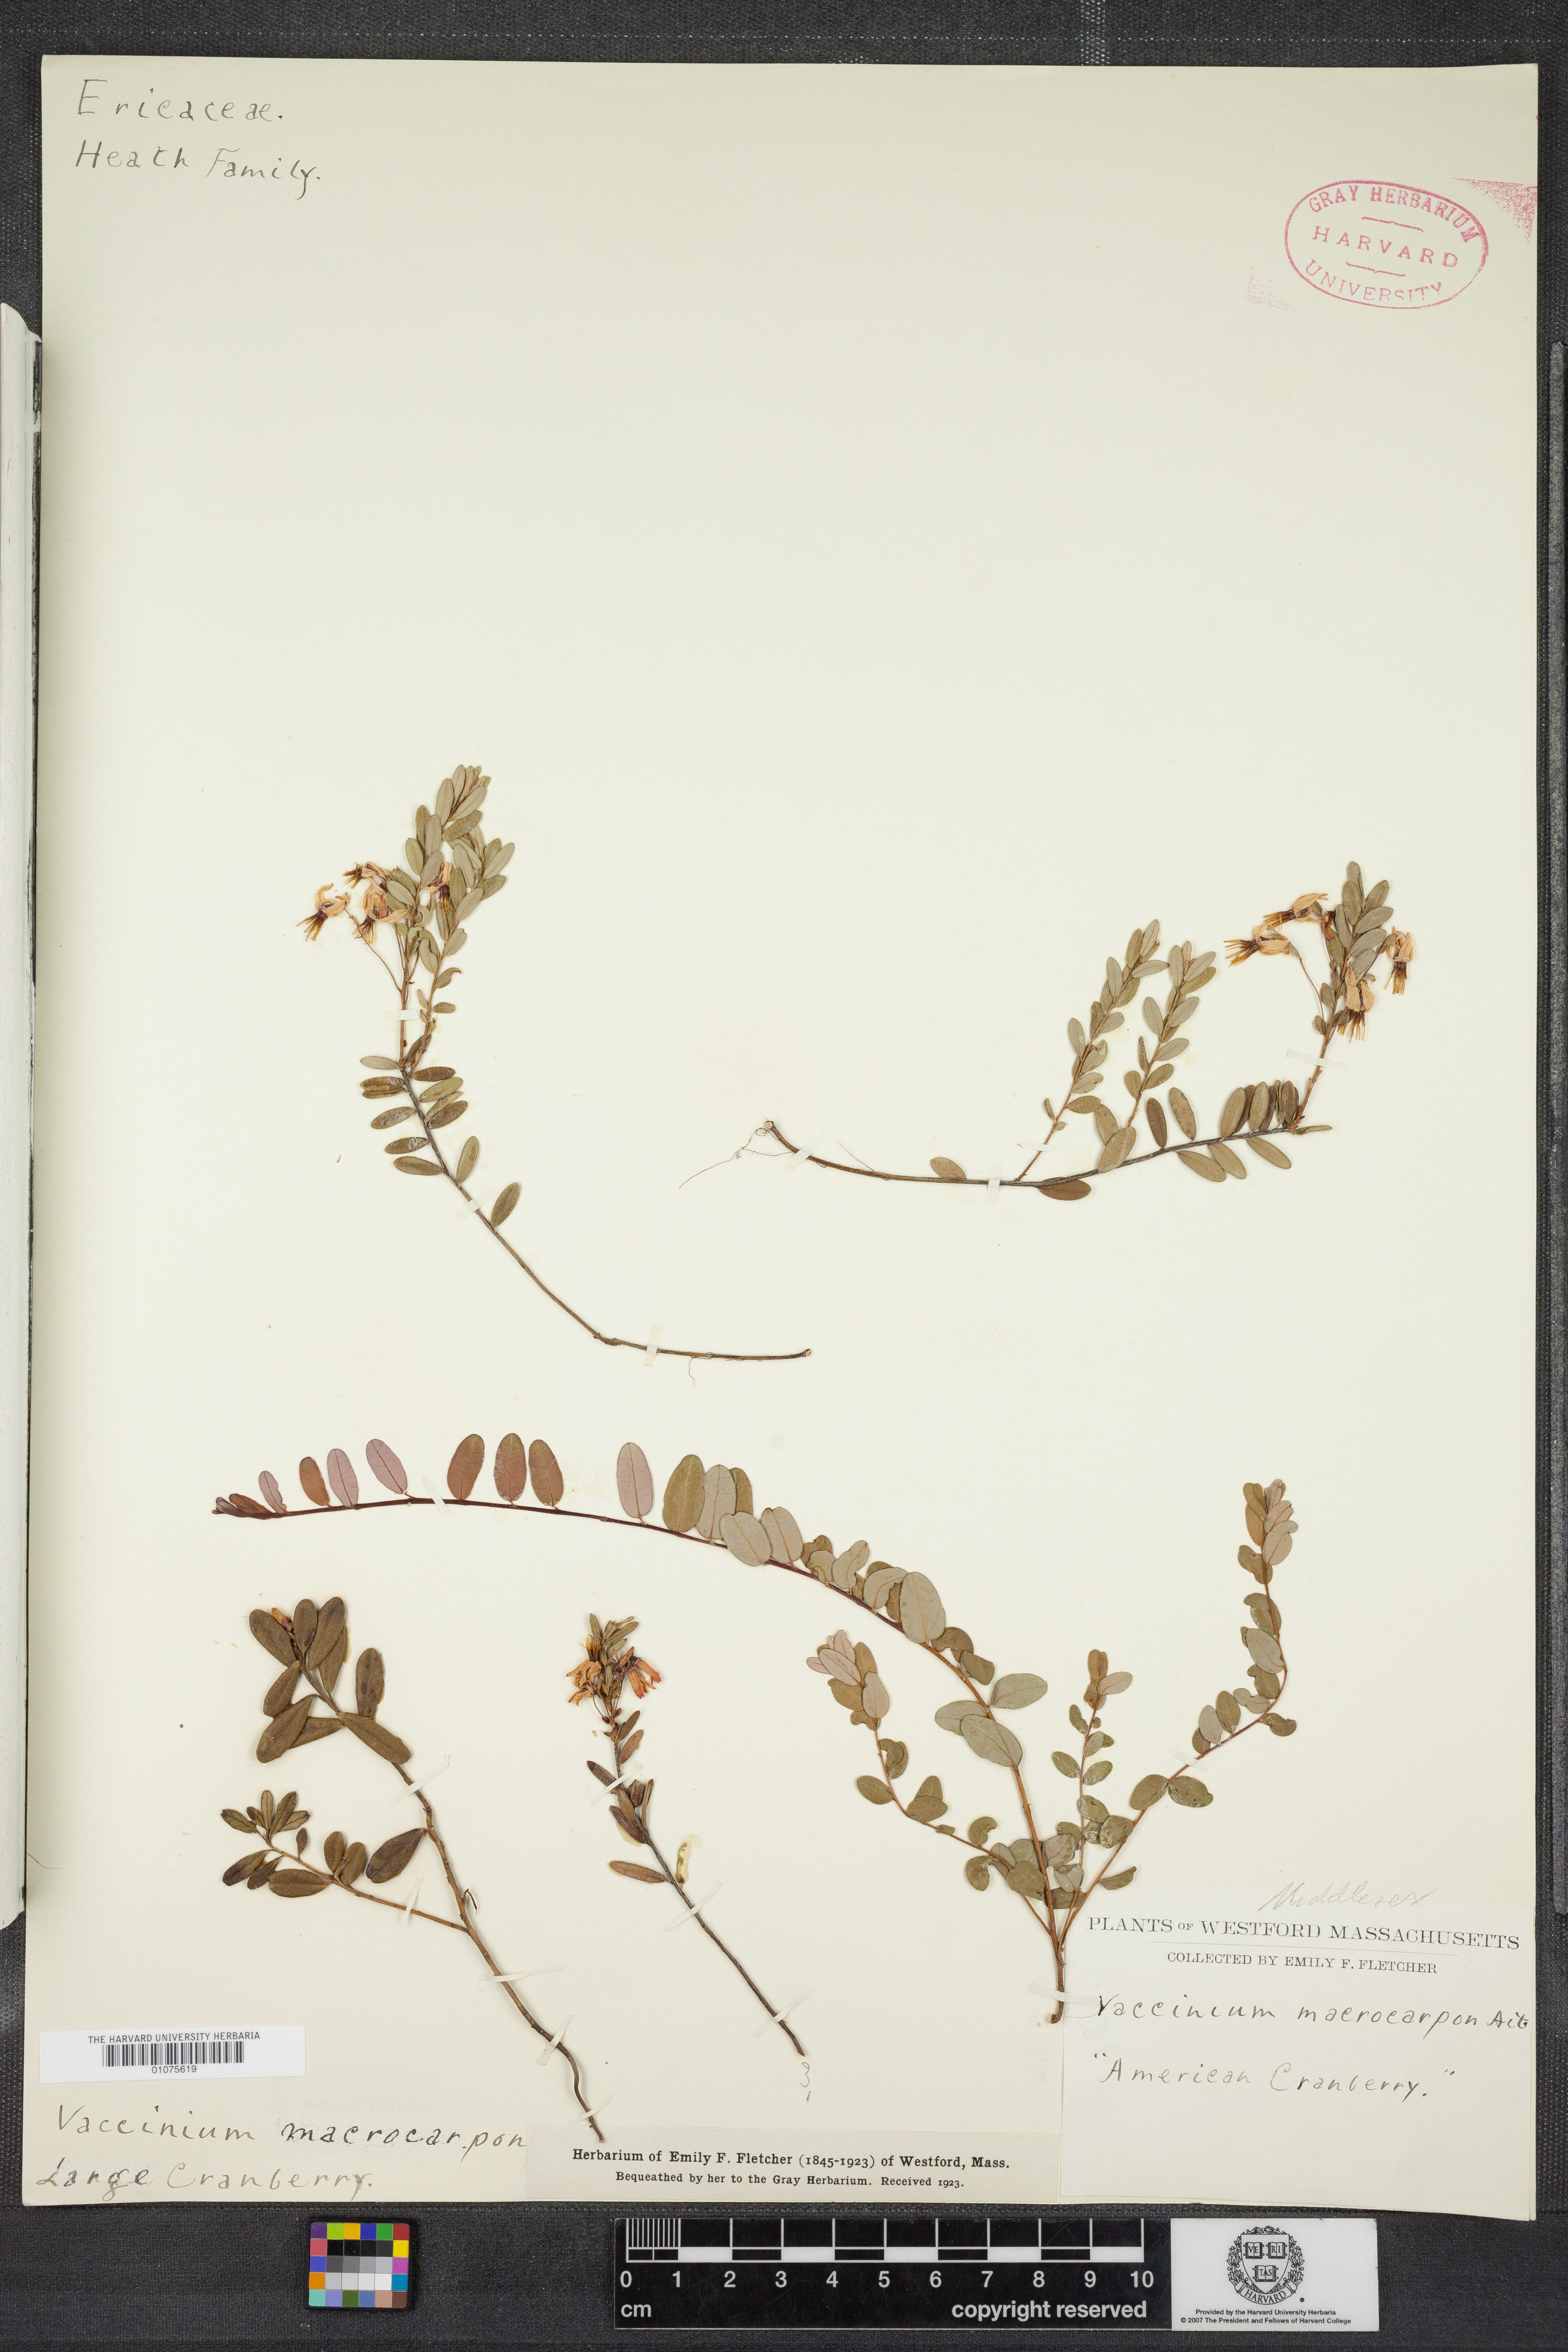 Ericaceae.
Heath Family.
GRAY HERBARIUM
HARVARD
UNIVERSITY
Middlesex
PLANTS OF WESTFORD MASSACHUSETTS
COLLECTED BY EMILY F. FLETCHER
Vaccinium macrocarpon Ait
"American Cranberry."
THE HARVARD UNIVERSITY HERBARIA
01075619
Vaccinium macrocarpon
Large Cranberry.
Herbarium of Emily F. Fletcher (1845-1923) of Westford, Mass.
Bequeathed by her to the Gray Herbarium. Received 1923.
0 1 2 3 4 5 6 7 8 9 10
cm copyright reserved
VE RI TAS
HARVARD
Provided by the Harvard University Herbaria
© 2007 The President and Fellows of Harvard College